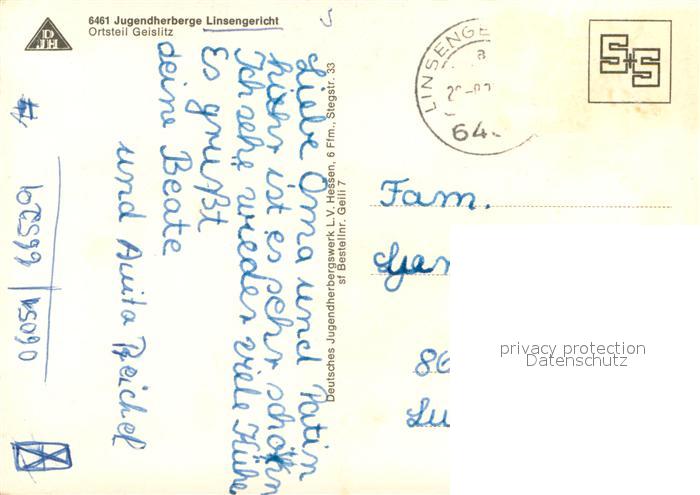 6461 Jugendherberge Linsengericht
Ortsteil Geislitz
DJH
Liebe Oma und Patin
hiehr ist es sehr schöhn
Ich sehe wieder viele Kühe
Es grüßt
deine Beate
und Anita Reichel
Deutsches Jugendherbergswerk L.V. Hessen, 6 Ffm., Stegstr. 33
sf Bestellnr. Geili 7
LINSENGE
64
S+S
Fam.
86
Lu
privacy protection
Datenschutz